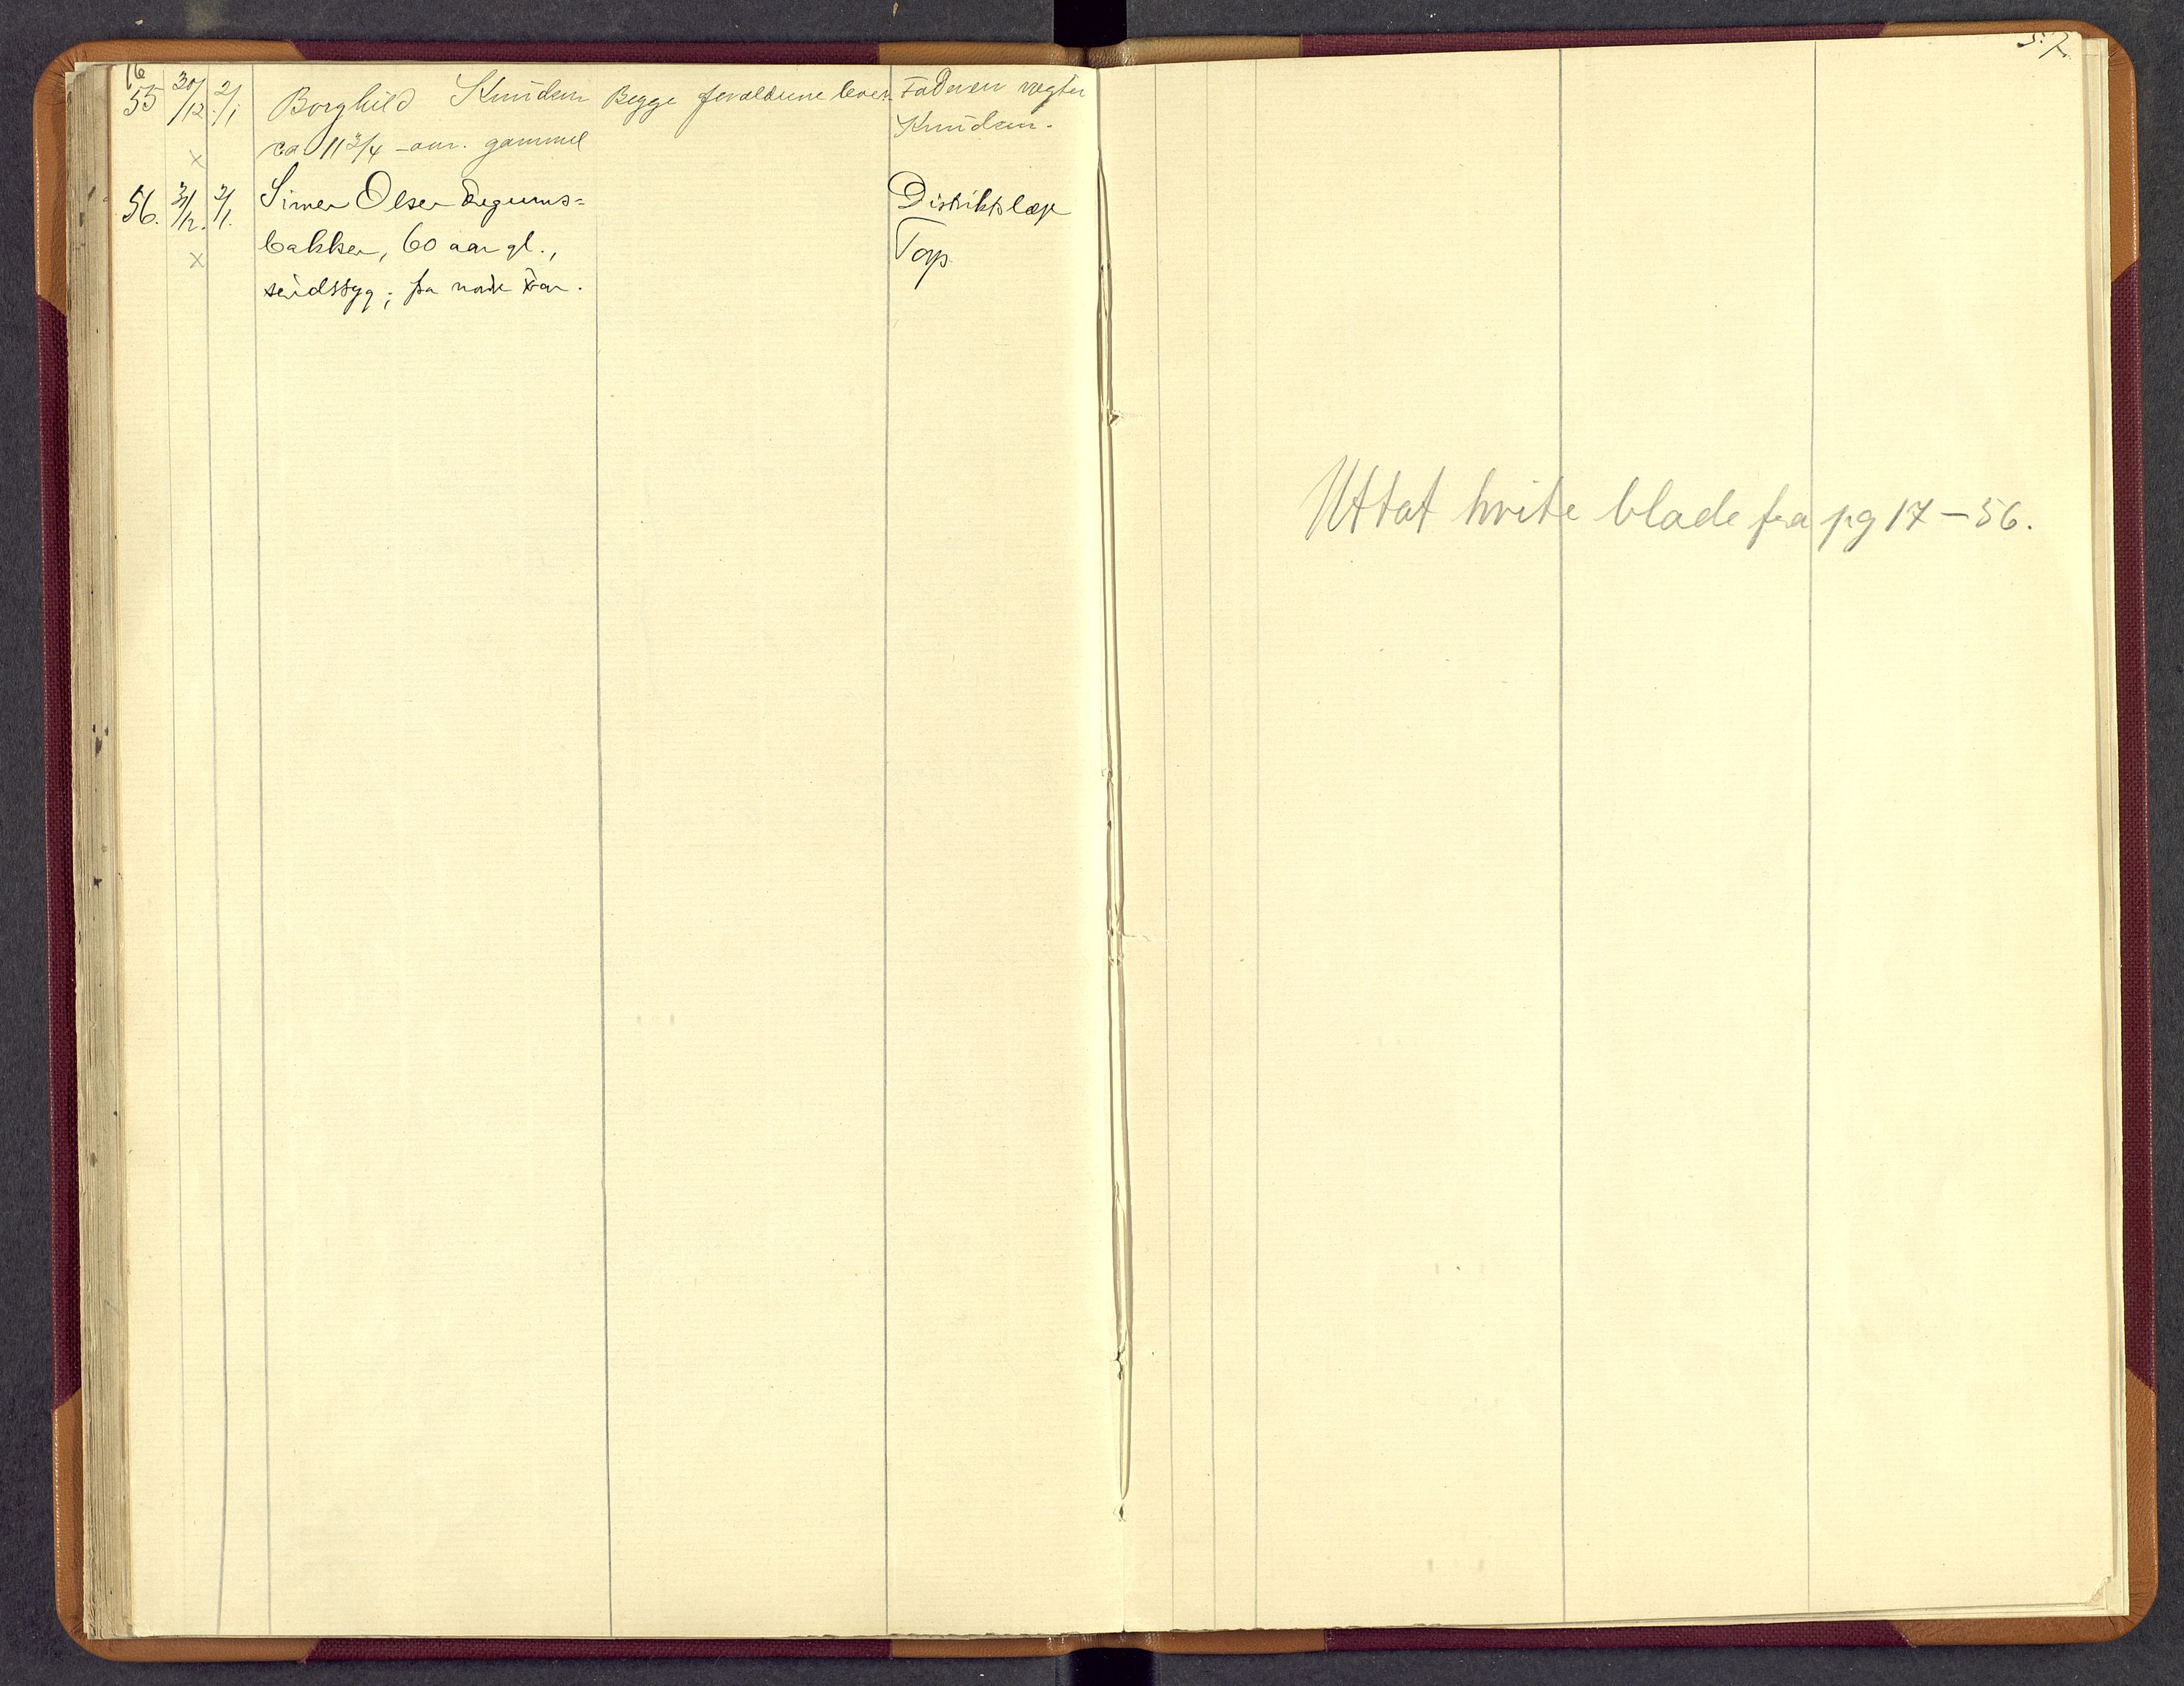 16
55 30/12 2/1 Borghild Knudsen Begge foraldrene lever Faderen vegter
Knudsen.
x ca 11 3/4 aar. gammel
56. 31/12. 2/1. Simen Olsen Distriktslæge
x bakken, 60 aar gl., Torp
sindssyg; fra
57.
Uttat hvite blade fra pg 17-56.